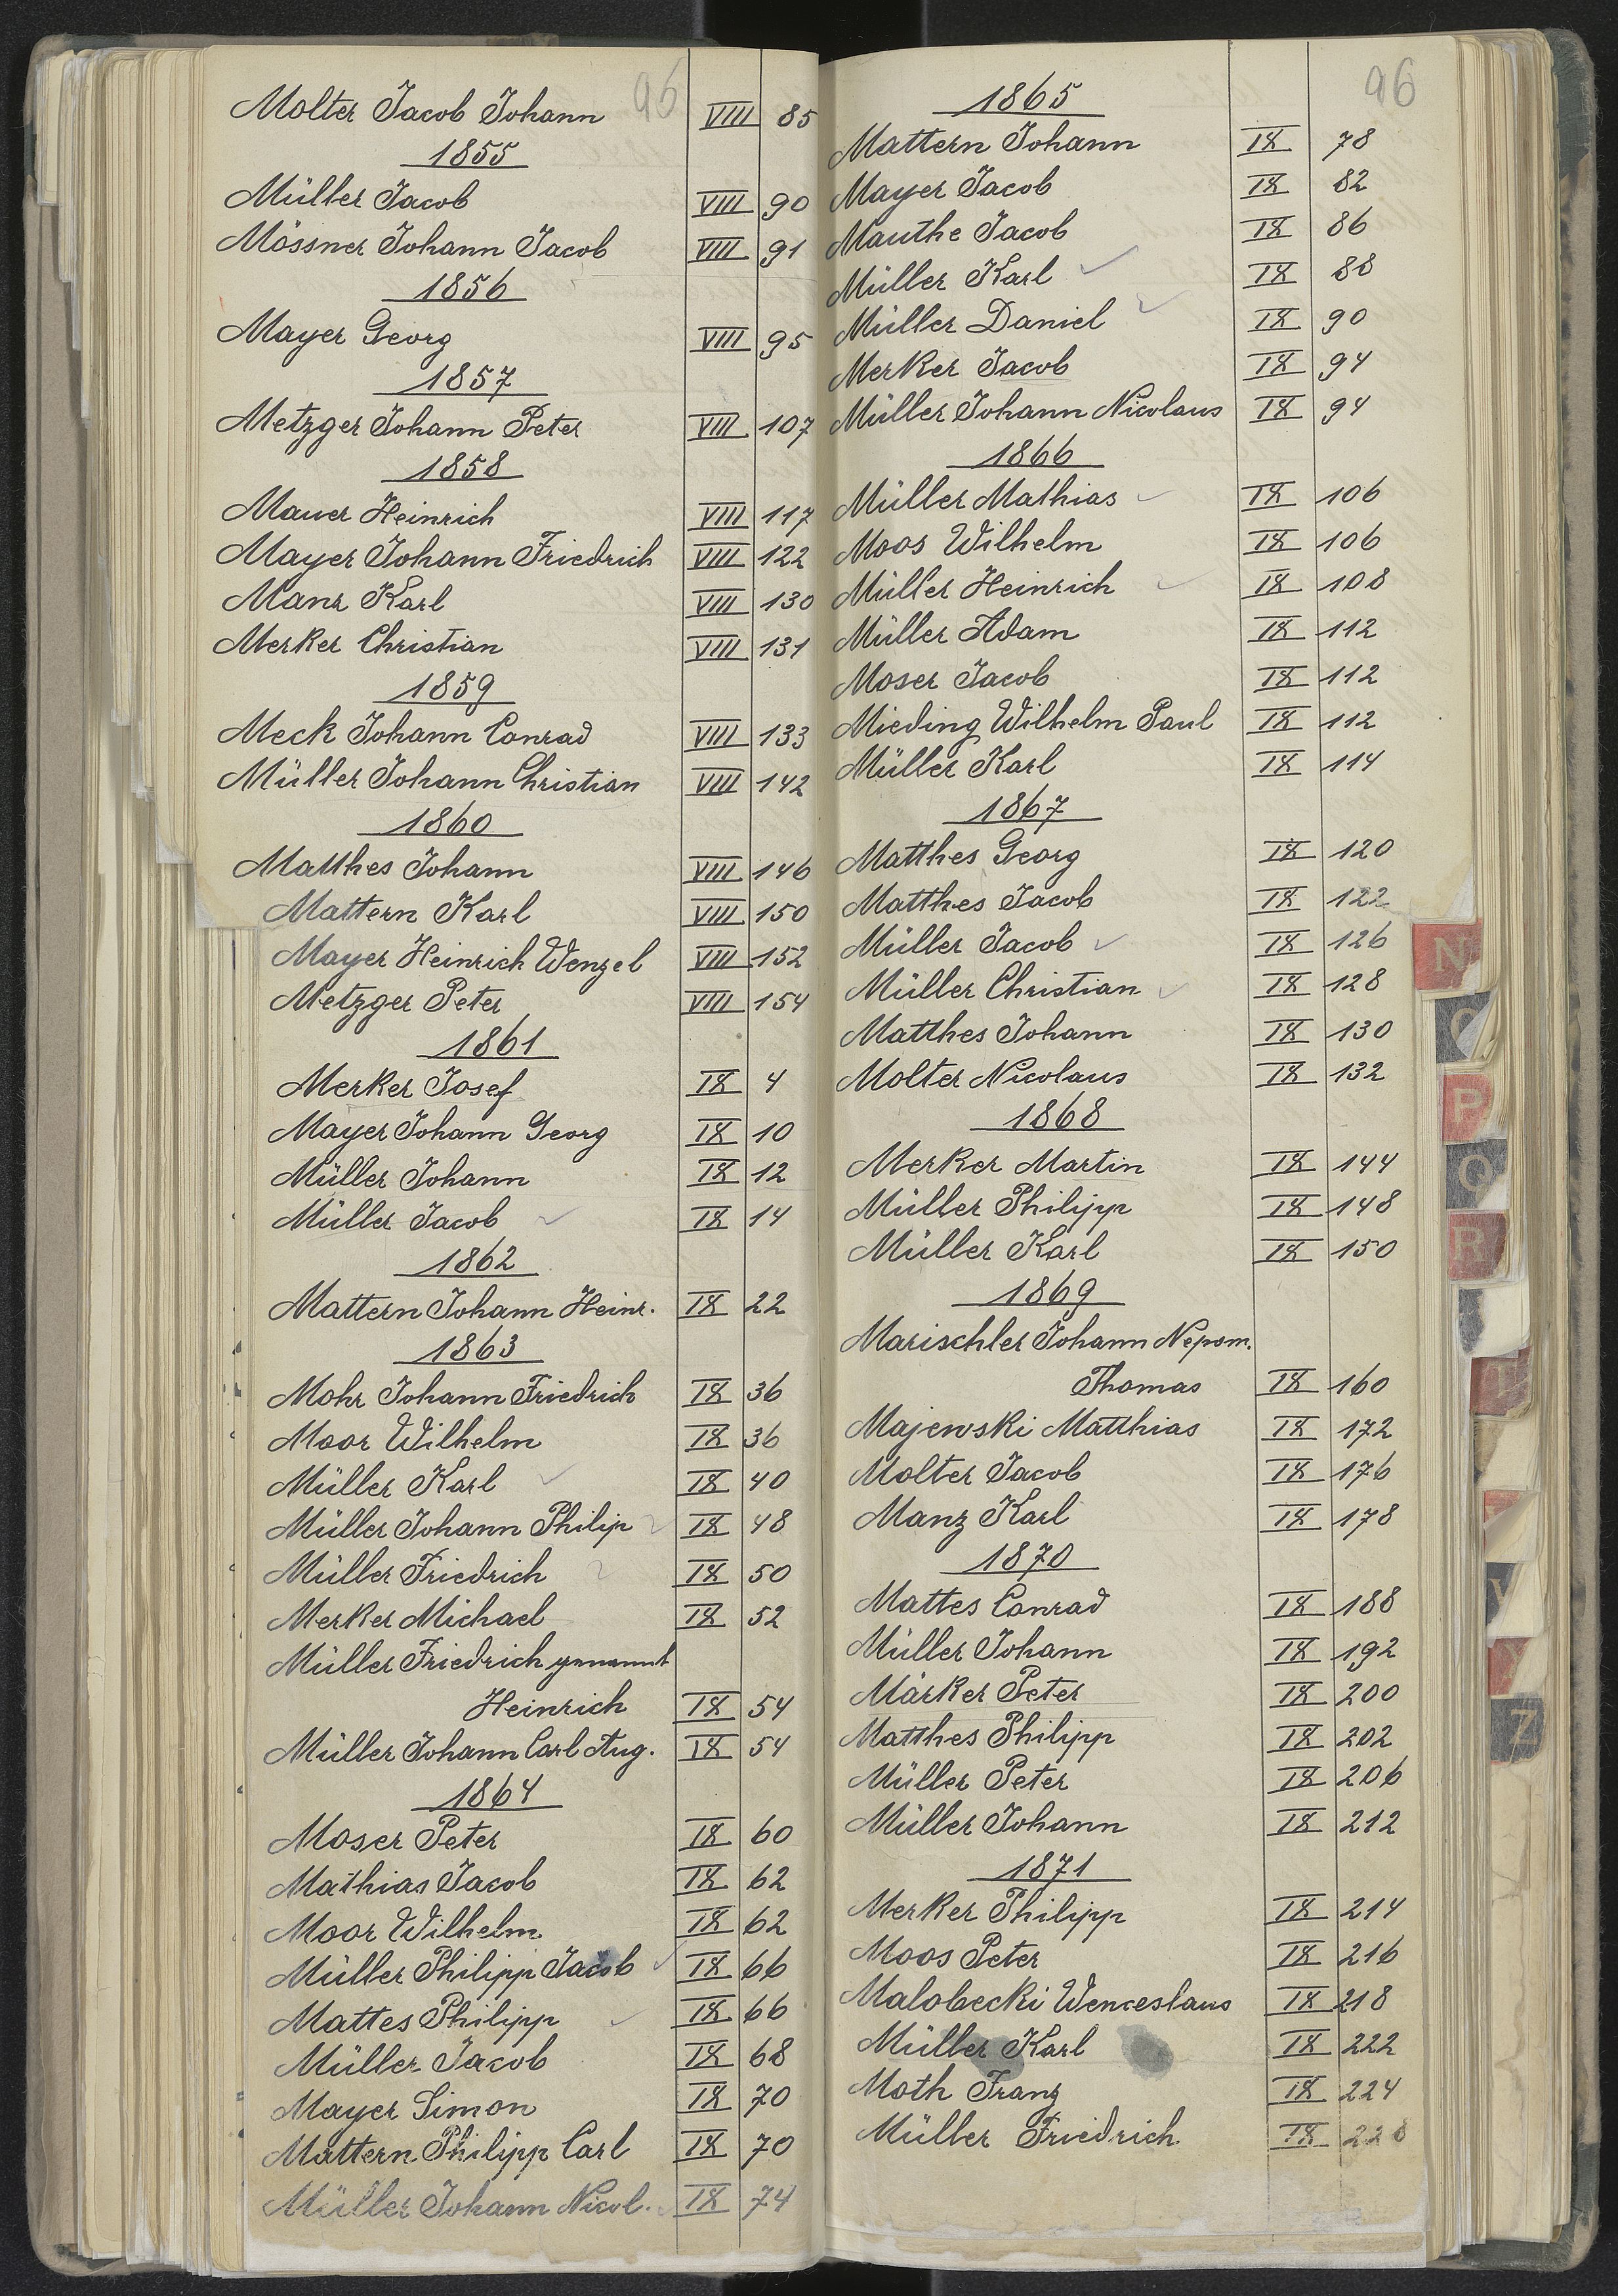 96
Molter Jacob Johann VIII 85
1855
Müller Jacob VIII 90
Mössner Johann Jacob VIII 91
1856
Mayer Georg VIII 95
1857
Metzger Johann Peter VIII 107
1858
Mauer Heinrich VIII 117
Mayer Johann Friedrich VIII 122
Manz Karl VIII 130
Merker Christian VIII 131
1859
Meck Johann Conrad VIII 133
Müller Johann Christian VIII 142
1860
Matthes Johann VIII 146
Mattern Karl VIII 150
Mayer Heinrich Wenzel VIII 152
Metzger Peter VIII 154
1861
Merker Josef IX 4
Mayer Johann Georg IX 10
Müller Johann IX 12
Müller Jacob IX 14
1862
Mattern Johann Heinr. IX 22
1863
Mohr Johann Friedrich IX 36
Moor Wilhelm IX 36
Müller Karl IX 40
Müller Johann Philip IX 48
Müller Friedrich IX 50
Merker Michael IX 52
Müller Friedrich genannt
Heinrich IX 54
Müller Johann Carl Aug. IX 54
1864
Moser Peter IX 60
Mathias Jacob IX 62
Moor Wilhelm IX 62
Müller Philipp Jacob IX 66
Mattes Philipp IX 66
Müller Jacob IX 68
Mayer Simon IX 70
Mattern Philipp Carl IX 70
Müller Johann Nicol. IX 74
96
1865
Mattern Johann IX 78
Mayer Jacob IX 82
Mauthe Jacob IX 86
Müller Karl IX 88
Müller Daniel IX 90
Merker Jacob IX 94
Müller Johann Nicolaus IX 94
1866
Müller Mathias IX 106
Moos Wilhelm IX 106
Müller Heinrich IX 108
Müller Adam IX 112
Moser Jacob IX 112
Mieding Wilhelm Paul IX 112
Müller Karl IX 114
1867
Matthes Georg IX 120
Matthes Jacob IX 122
Müller Jacob IX 126
Müller Christian IX 128
Matthes Johann IX 130
Molter Nicolaus IX 132
1868
Merker Martin IX 144
Müller Philipp IX 148
Müller Karl IX 150
1869
Marischler Johann Nepom.
Thomas IX 160
Majewski Matthias IX 172
Molter Jacob IX 176
Manz Karl IX 178
1870
Mattes Conrad IX 188
Müller Johann IX 192
Märker Peter IX 200
Matthes Philipp IX 202
Müller Peter IX 206
Müller Johann IX 212
1871
Merker Philipp IX 214
Moos Peter IX 216
Malobecki Wenceslaus IX 218
Müller Karl IX 222
Moth Franz IX 224
Müller Friedrich IX
N
P
Q
R
Z